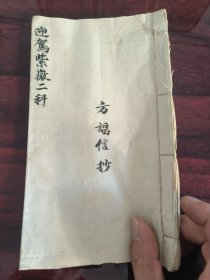 迎駕紫微二科
方謁信抄